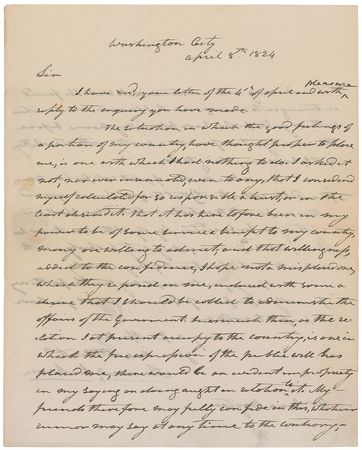 Washington City
April 8th 1824
Sir
I have recd. your letter of the 4th of april and with pleasure
reply to the enquiry you have made.
The situation in which the good feelings of
a portion of my country, have thought proper to place
me, is one with which I have nothing to do. I asked it
not, nor ever insinuated, even to any, that I considered
myself calculated for so responsible a trust, or in the
least desired it. That it has heretofore been in my
power to be of some service & benefit to my country,
many are willing to admit, and that willingness,
added to the confidence, I hope not a misplaced one,
which they repose in me, induced with some a
desire that I should be called to administer the
affairs of the Government. Inasmuch then, as the re
lation I at present occupy to the country, is one in
which the free expression of the public will has
placed me, there would be an evident impropriety
in my saying or doing aught in relation to it. My
friends therefore may fully confide in this, whatever
rumor may say at any time to the contrary,